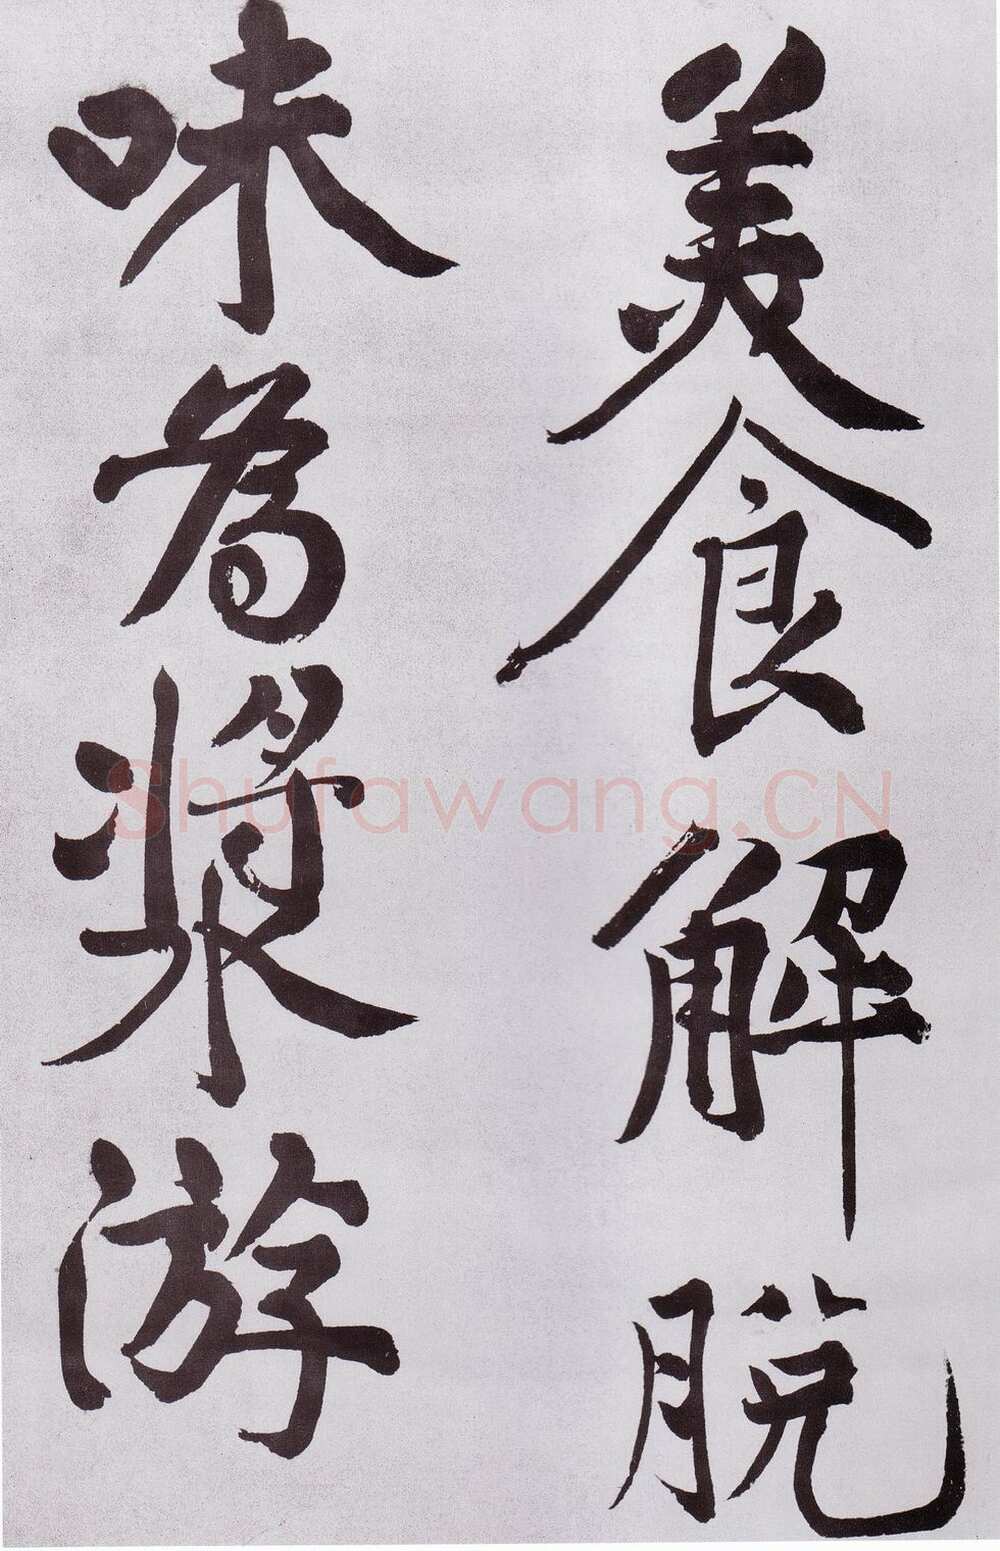 美食解脱
味為漿游
Shufawang.CN